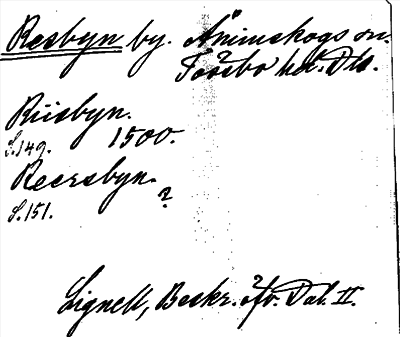 Resbyn by. Ånimskogs sn.
Tössbo hd. Dls.
Riisbyn.
S.149. 1500.
Reersbyn.
S.151. ?
Lignell, Beskr. öfv. Dal. II.